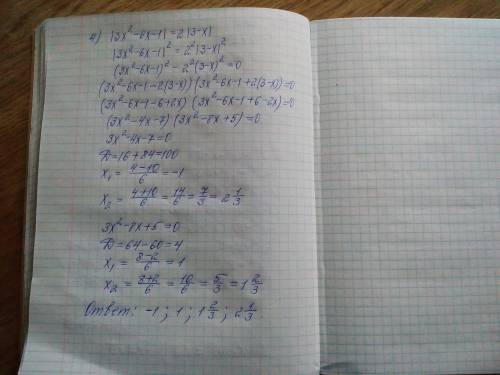 4) |3x²-6x-1| = 2|3-x|
|3x²-6x-1|² = 2²|3-x|²
(3x²-6x-1)² - 2²(3-x)² = 0
(3x²-6x-1-2(3-x)) (3x²-6x-1+2(3-x)) = 0
(3x²-6x-1-6+2x) (3x²-6x-1+6-2x) = 0
(3x²-4x-7) (3x²-8x+5) = 0
3x²-4x-7=0
D=16+84=100
x₁ = (4-10)/6 = -1
x₂ = (4+10)/6 = 14/6 = 7/3 = 2 1/3
3x²-8x+5=0
D=64-60=4
x₁ = (8-2)/6 = 1
x₂ = (8+2)/6 = 10/6 = 5/3 = 1 2/3
Ответ: -1; 1; 1 2/3; 2 1/3.